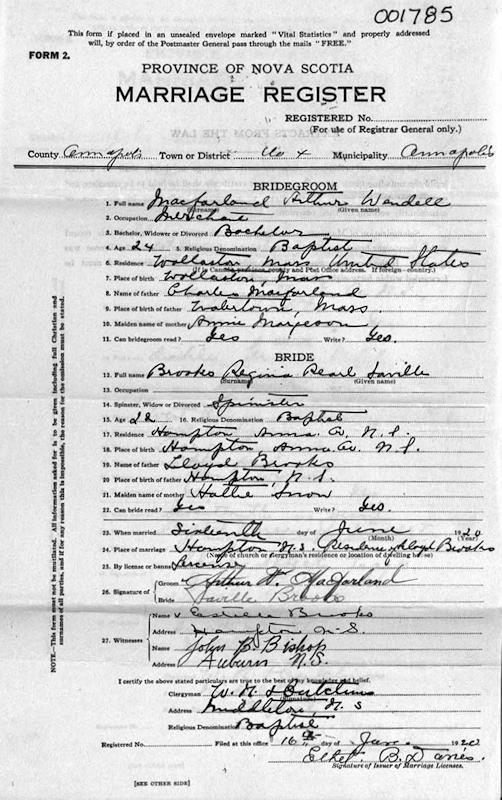 001785
This form if placed in an unsealed envelope marked "Vital Statistics" and properly addressed
will, by order of the Postmaster General pass through the mails "FREE."
FORM 2.
PROVINCE OF NOVA SCOTIA
MARRIAGE REGISTER
REGISTERED No.
(For use of Registrar General only.)
County Annapolis Town or District No 4 Municipality Annapolis
BRIDEGROOM
1. Full name Macfarland Arthur Wendell
(Surname) (Given name)
2. Occupation Merchant
3. Bachelor, Widower or Divorced Bachelor
4. Age 24 5. Religious Denomination Baptist
6. Residence Wollaston Mass United States
(If in Canada province, county and Post Office address. If foreign - country.)
7. Place of birth Wollaston, Mass
8. Name of father Charles Macfarland
9. Place of birth of father Watertown, Mass.
10. Maiden name of mother Annie Margeson
11. Can bridegroom read? Yes Write? Yes.
BRIDE
12. Full name Brooks Regina Pearl Saville
(Surname) (Given name)
13. Occupation
14. Spinster, Widow or Divorced Spinster
15. Age 22 16. Religious Denomination Baptist
17. Residence Hampton Anna. Co. N.S.
18. Place of birth Hampton, Anna Co. N.S.
19. Name of father Lloyd Brooks
20. Place of birth of father Hampton, N.S.
21. Maiden name of mother Hattie Snow
22. Can bride read? Yes Write? Yes.
23. When married Sixteenth day of June 1920
(Month) (Year)
24. Place of marriage Hampton N.S. Residence of Lloyd Brooks
(Name of church or clergyman's residence or location of dwelling house)
25. By license or banns License
26. Signature of Groom Arthur W. Macfarland
Bride Saville Brooks
27. Witnesses
Name Brooks
Address Hampton N.S.
Name John B. Bishop
Address Auburn N.S.
I certify the above stated particulars are true to the best of my knowledge and belief.
(Signature)
Clergyman W. H.
Address Middleton, N.S
Religious Denomination Baptist
Registered No. Filed at this office 16th day of 1920
Ethel B. Davies
Signature of Issuer of Marriage Licenses.
[SEE OTHER SIDE]
NOTE.—This form must not be mutilated. All information asked for is to be given including full Christian and
surnames of all parties, and if for any reason this is impossible, the reason for the omission must be stated.